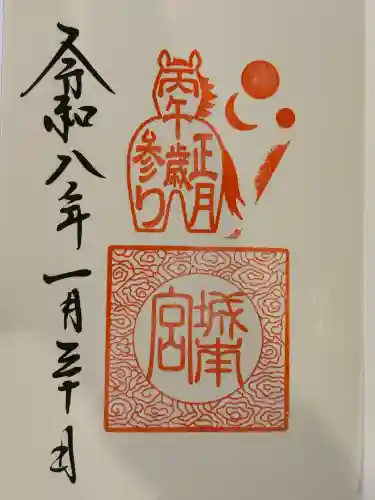 丙午
歳
正月
参り
城南宮
令和八年一月三十日